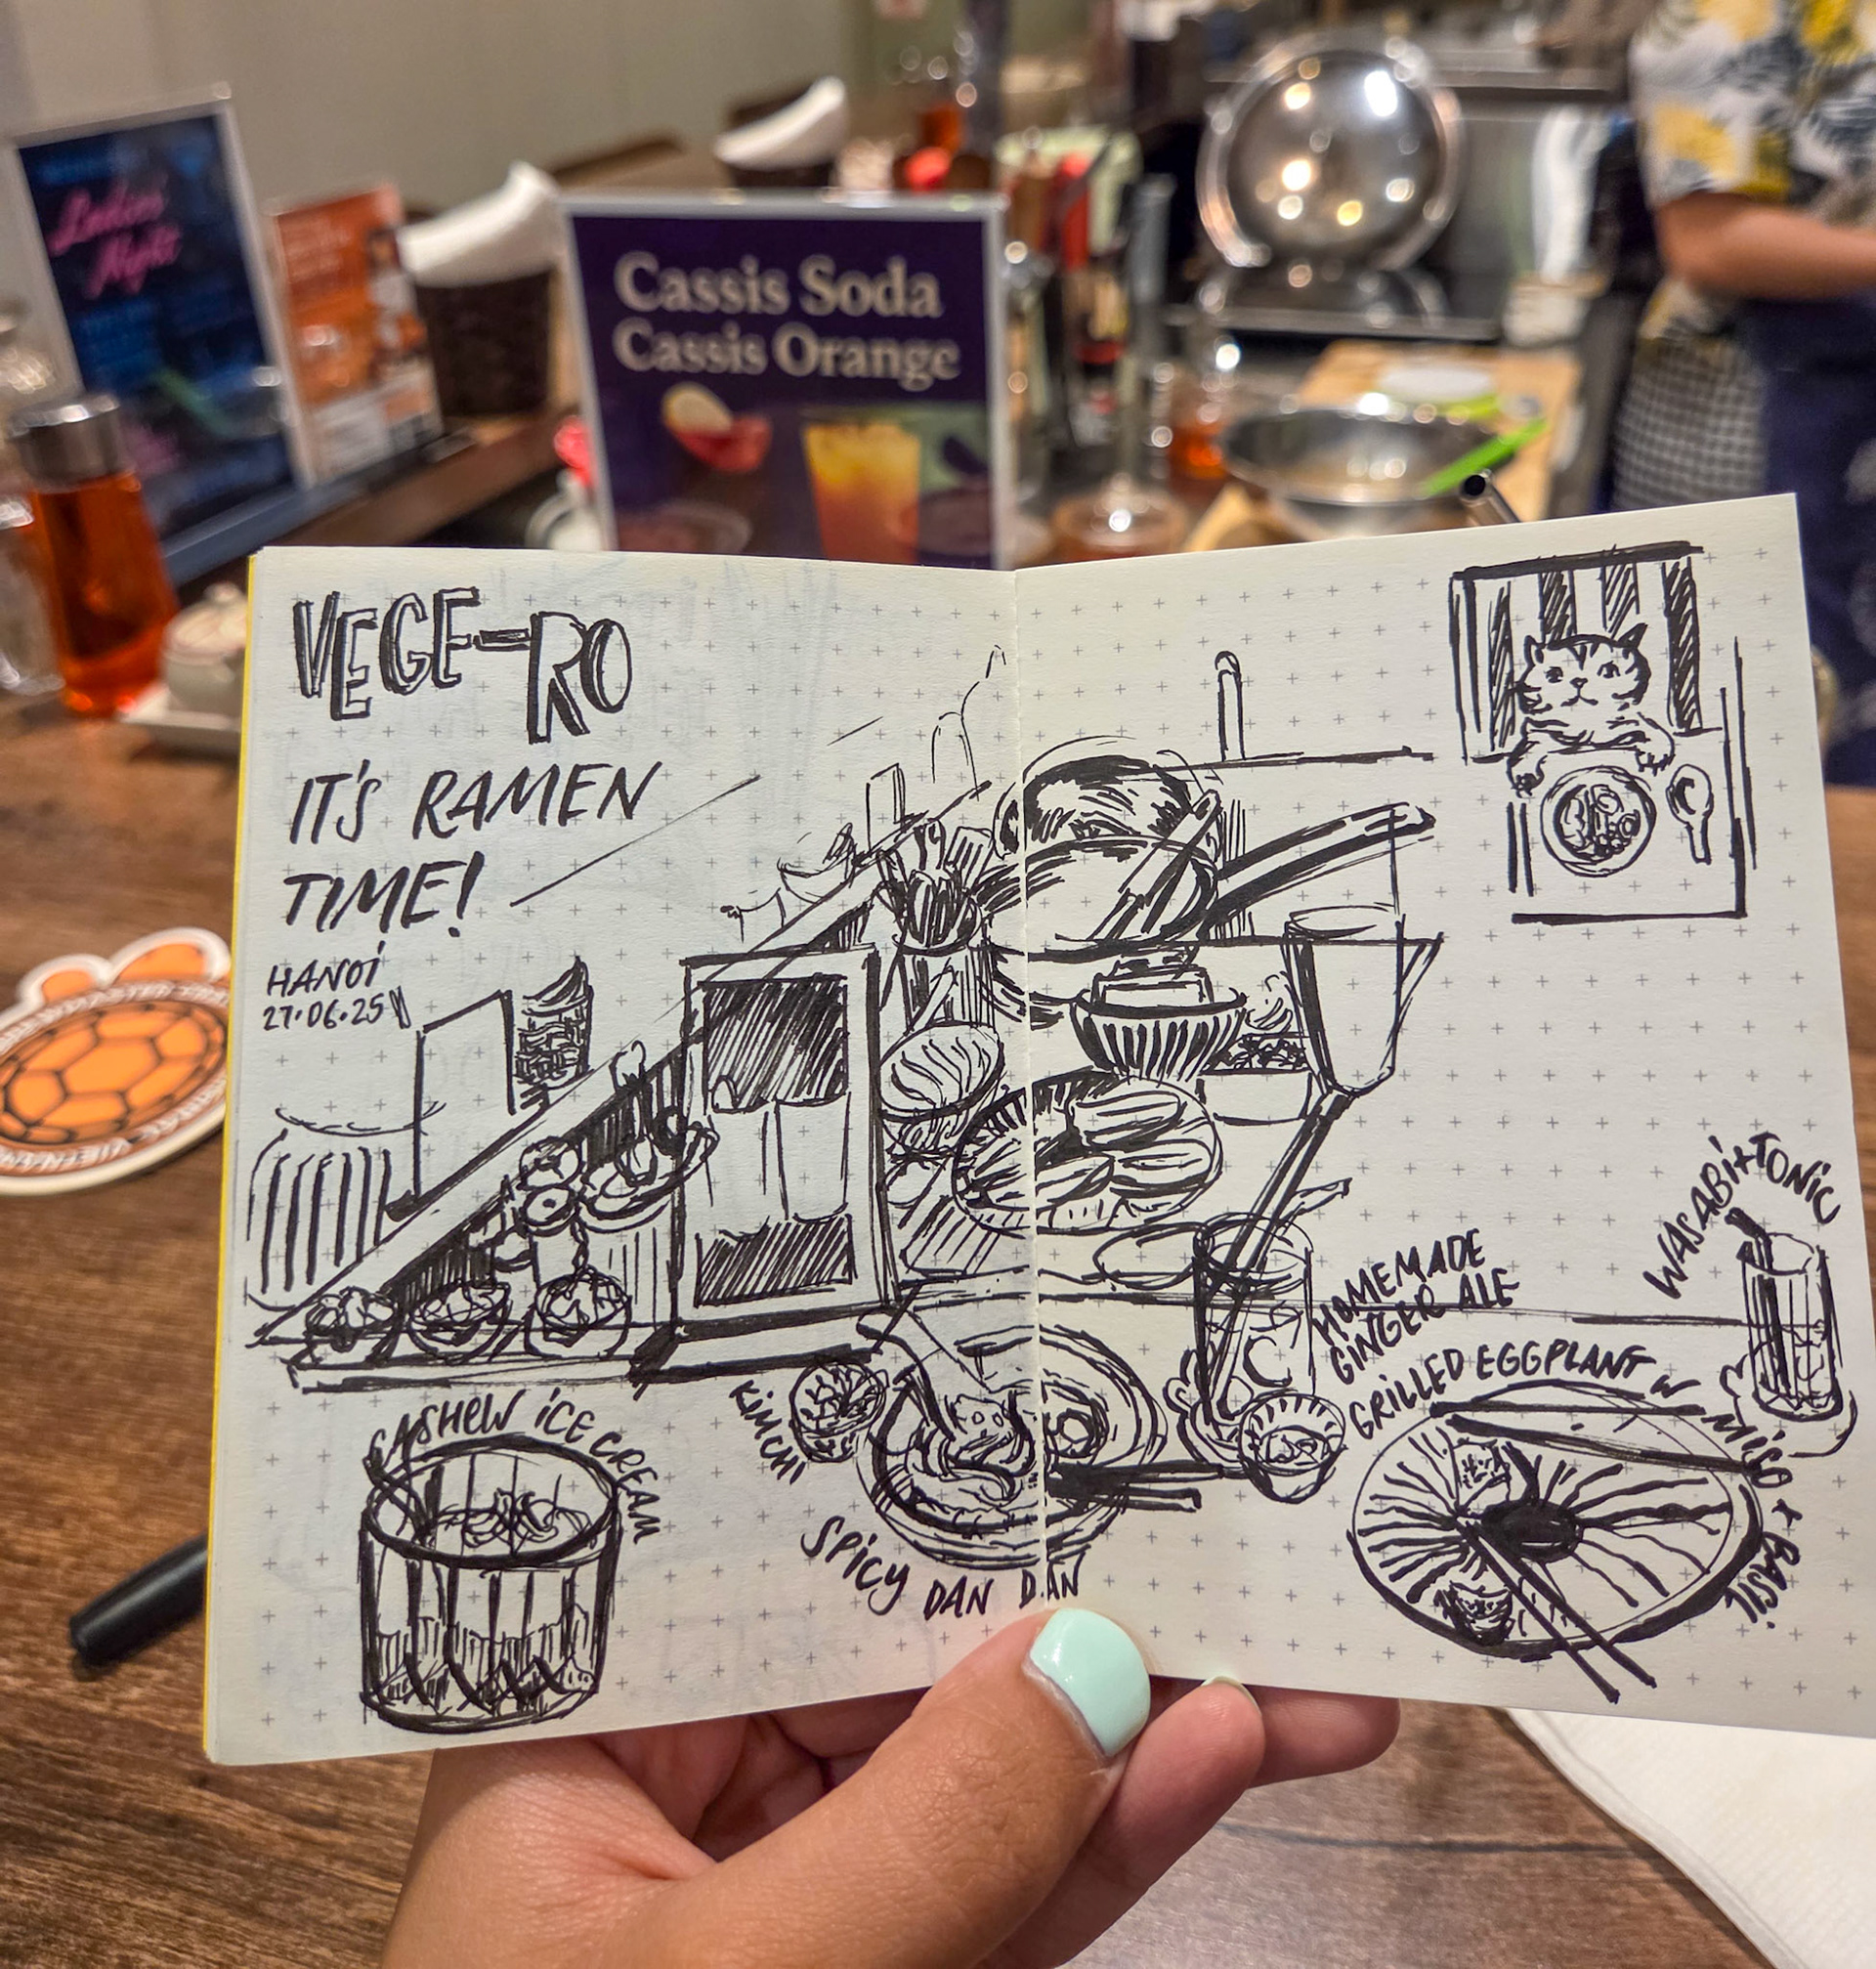 Ladies'
Night
Cassis Soda
Cassis Orange
VEGE-RO
IT'S RAMEN
TIME!
HANOI
27.06.25
CASHEW ICE CREAM
KIMCHI
SPICY DAN DAN
HOMEMADE
GINGER ALE
GRILLED EGGPLANT W MISO + BASIL
WASABI+TONIC